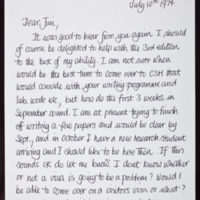 July 10th 1974
Dear Jim,
It was good to hear from you again. I should
of course be delighted to help with the 3rd edition
to the best of my ability. I am not sure when
would be the best time to come over to CSH that
would coincide with your writing programme and
lab work etc, but how do the first 3 weeks in
September sound. I am at present trying to finish
off writing a few papers and would be clear by
Sept, and in October I have a new research student
arriving and I should like to be here then. If this
sounds OK do let me know. I dont know whether
or not a visa is going to be a problem? Would I
be able to come over on a visitors visa or what?